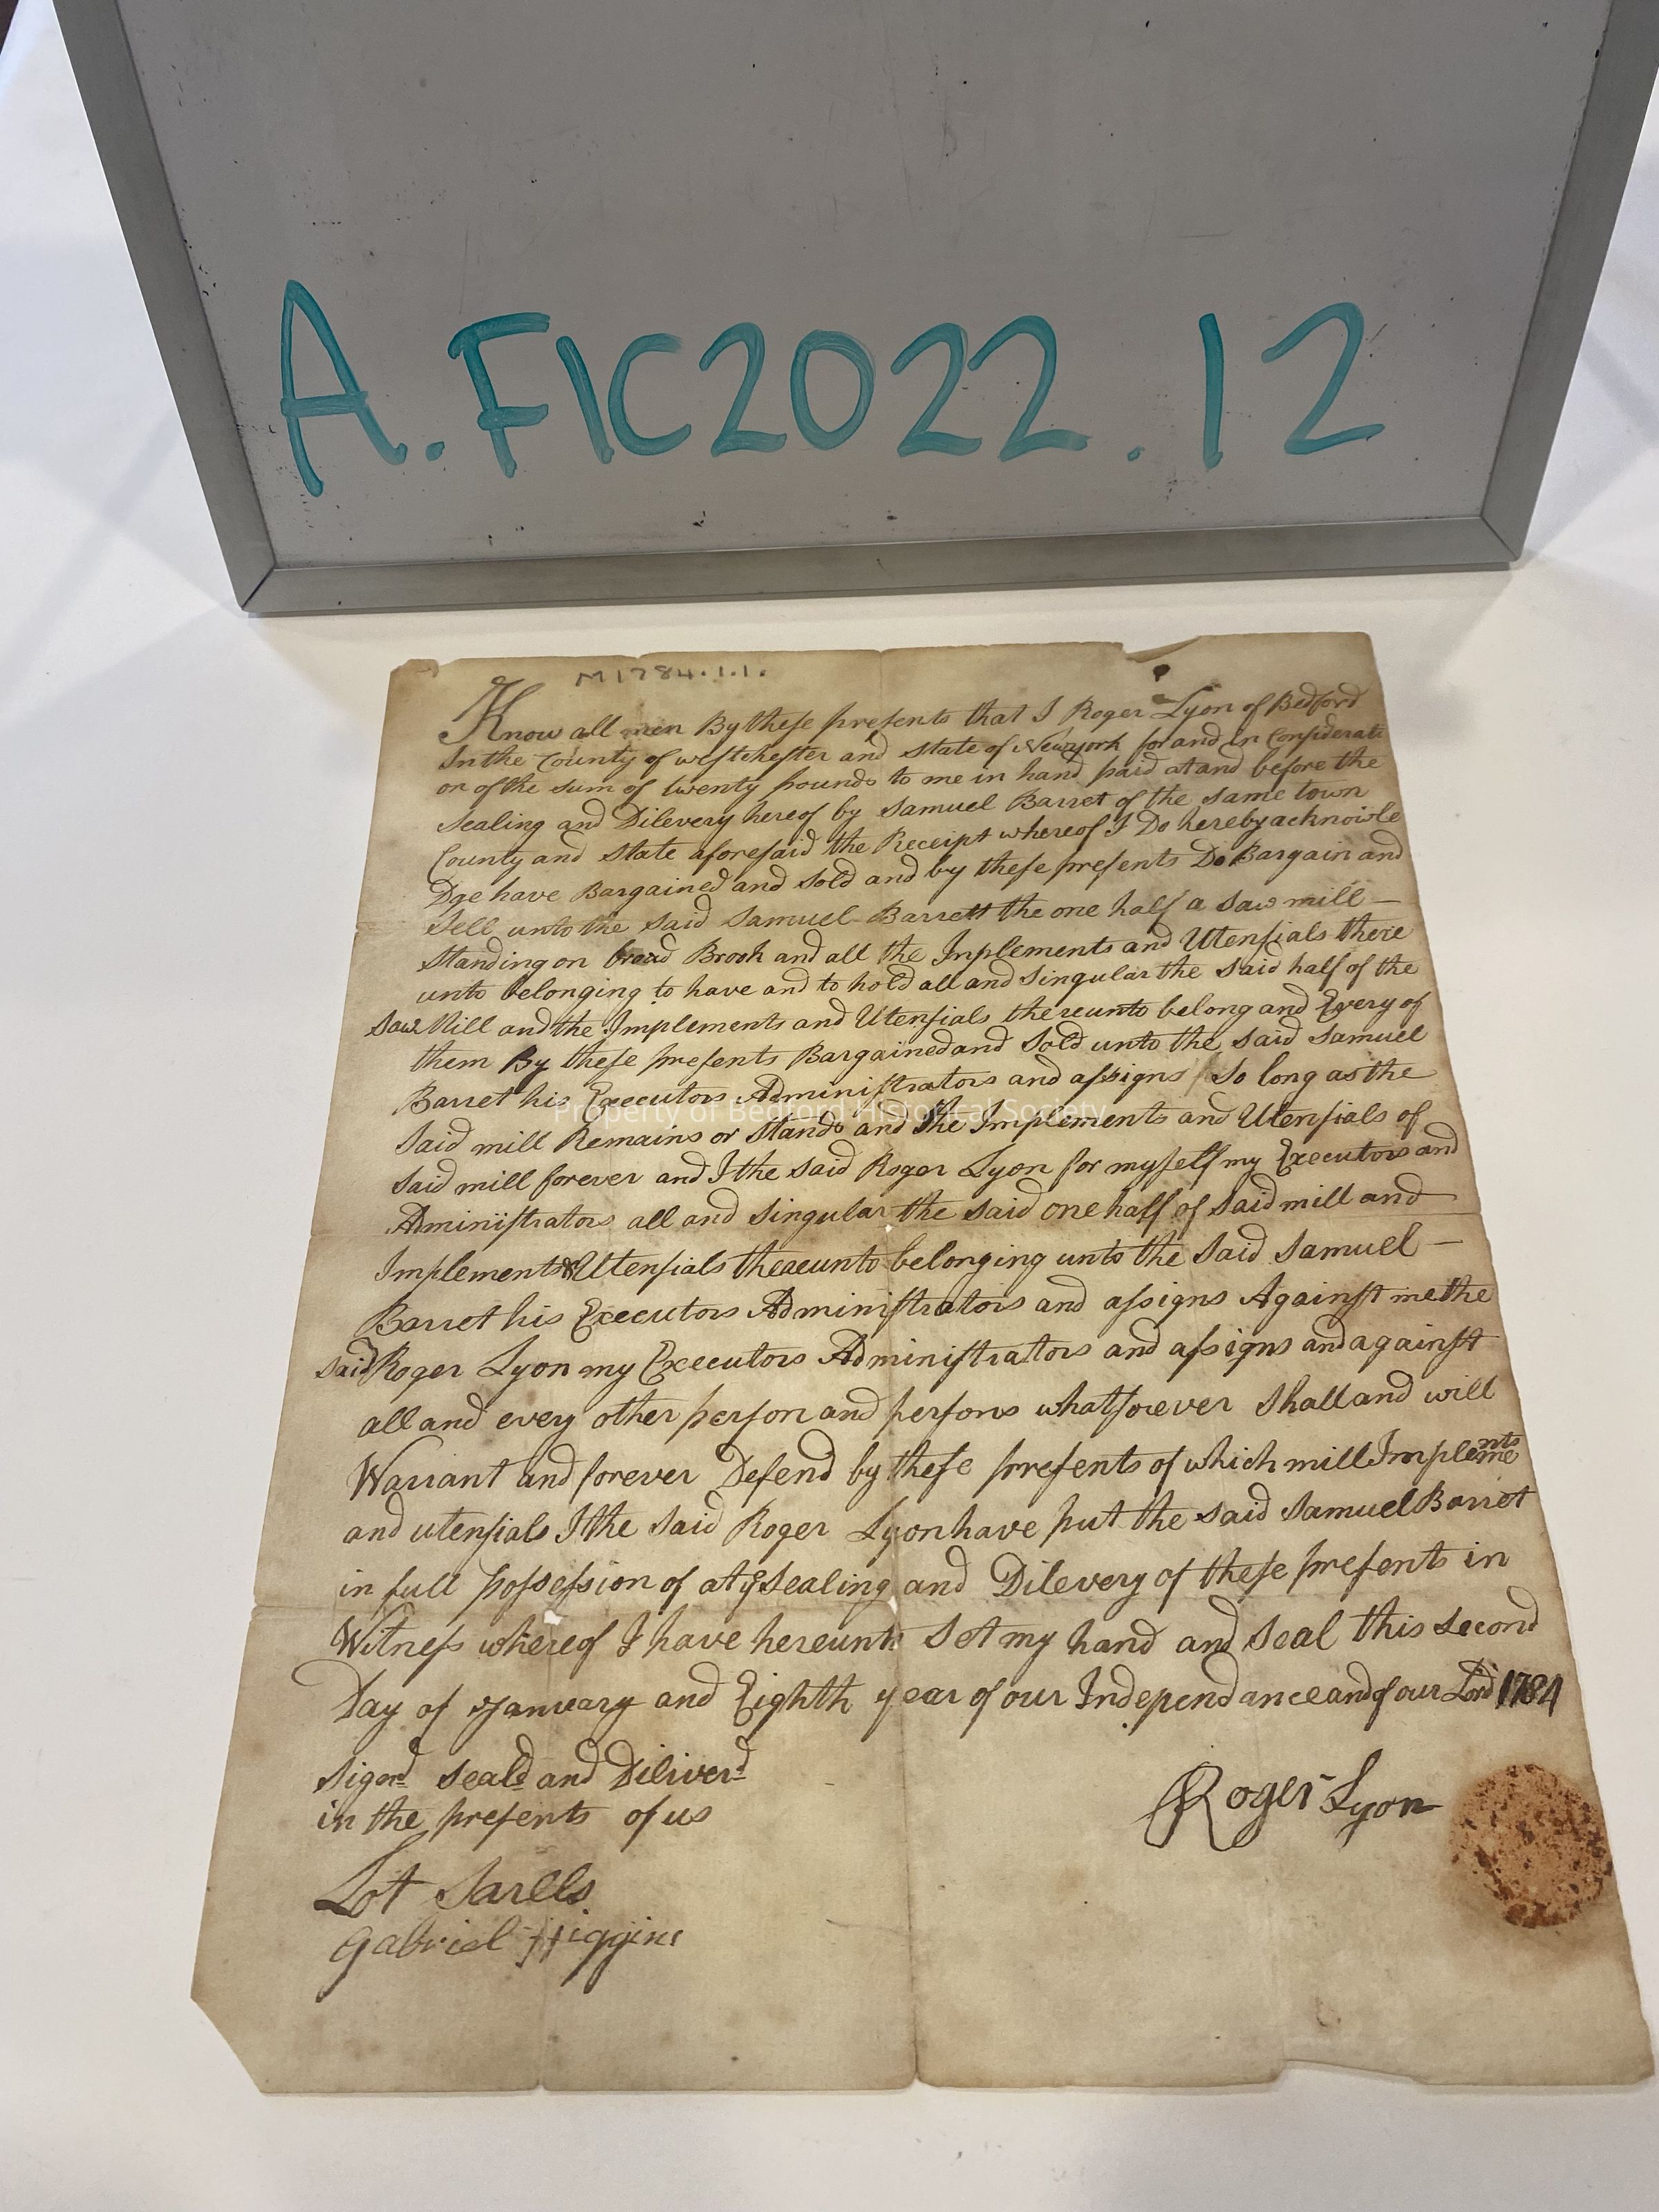 A.FIC2022.12
M1784.1.1.
Know all men By these presents that I Roger Lyon of Bedford
In the County of westchester and state of Newyork for and in Considerati
on of the sum of twenty pounds to me in hand paid at and before the
Sealing and Dilevery hereof by Samuel Barret of the same town
County and State aforesaid the Receipt whereof I Do hereby acknowle
Dge have Bargained and Sold and by these presents Do Bargain and
Sell unto the Said Samuel Barrett the one half a Saw mill —
Standing on broad Brook and all the Inplements and Utensials there
unto belonging to have and to hold all and Singular the Said half of the
Saw Mill and the Implements and Utensials thereunto belong and Every of
them By these presents Bargained and Sold unto the Said Samuel
Barret his Executors Administrators and assigns So long as the
Said mill Remains or Stands and the Implements and Utensials of
Said mill forever and I the Said Roger Lyon for myself my Executors and
Administrators all and Singular the Said one half of Said mill and
Implements & Utensials thereunto belonging unto the Said Samuel —
Barret his Executors Administrators and assigns Against me the
Said Roger Lyon my Executors Administrators and assigns and against
all and every other person and persons whatsoever Shall and will
Warrant and forever Defend by these presents of which mill Implements
and utensials I the Said Roger Lyon have put the Said Samuel Barret
in full possession of at ye Sealing and Dilevery of these presents in
Witness whereof I have hereunto Set my hand and Seal this Second
Day of January and Eighth year of our Independance and of our Lord 1784
Signd Seald and Diliverd
in the presents of us
Roger Lyon
Lot Sarlls
Gabriel Higgins
Property of Bedford Historical Society